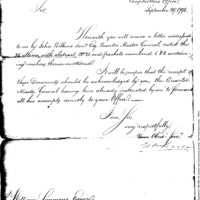 Comptrollers Office
September 29th 1798.
Sir,
Herewith you will receive a letter addressed
to me by John Wilkins Junr. Esq. Quarter Master General, dated the
with abstract No. 21 and packets numbered
vouchers therein mentioned.
It will be proper that the receipt of
these Documents should be acknowledged by you, the Quarter
Master General having been already instructed by me to forward
all his accompts directly to your Office.
I am Sir,
very respectfully
Your Obed. Serv.
William Simmons Esquire